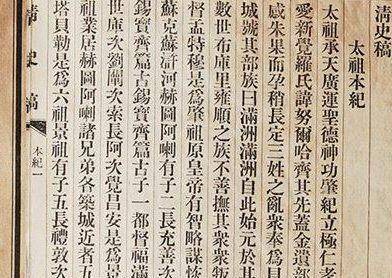 清史稿
太祖本紀
太祖承天廣運聖德神功肇紀立極仁孝
愛新覺羅氏諱努爾哈齊其先蓋金遺部
感朱果而孕稍長定三姓之亂衆奉爲貝
城號其部族曰滿洲滿洲自此始元於其
數世布庫里雍順之族不善撫其衆衆叛
督孟特穆是爲肇祖原皇帝有智略謀恢
蘇克蘇滸河赫圖阿喇有子二長充善次
錫寶齊篇古錫寶齊篇古子一都督福滿
世庫次劉闡次索長阿次覺昌安是爲景
祖業居赫圖阿喇諸兄弟各築城近者五
塔貝勒是爲六祖景祖有子五長禮敦次
清史稿
本紀一